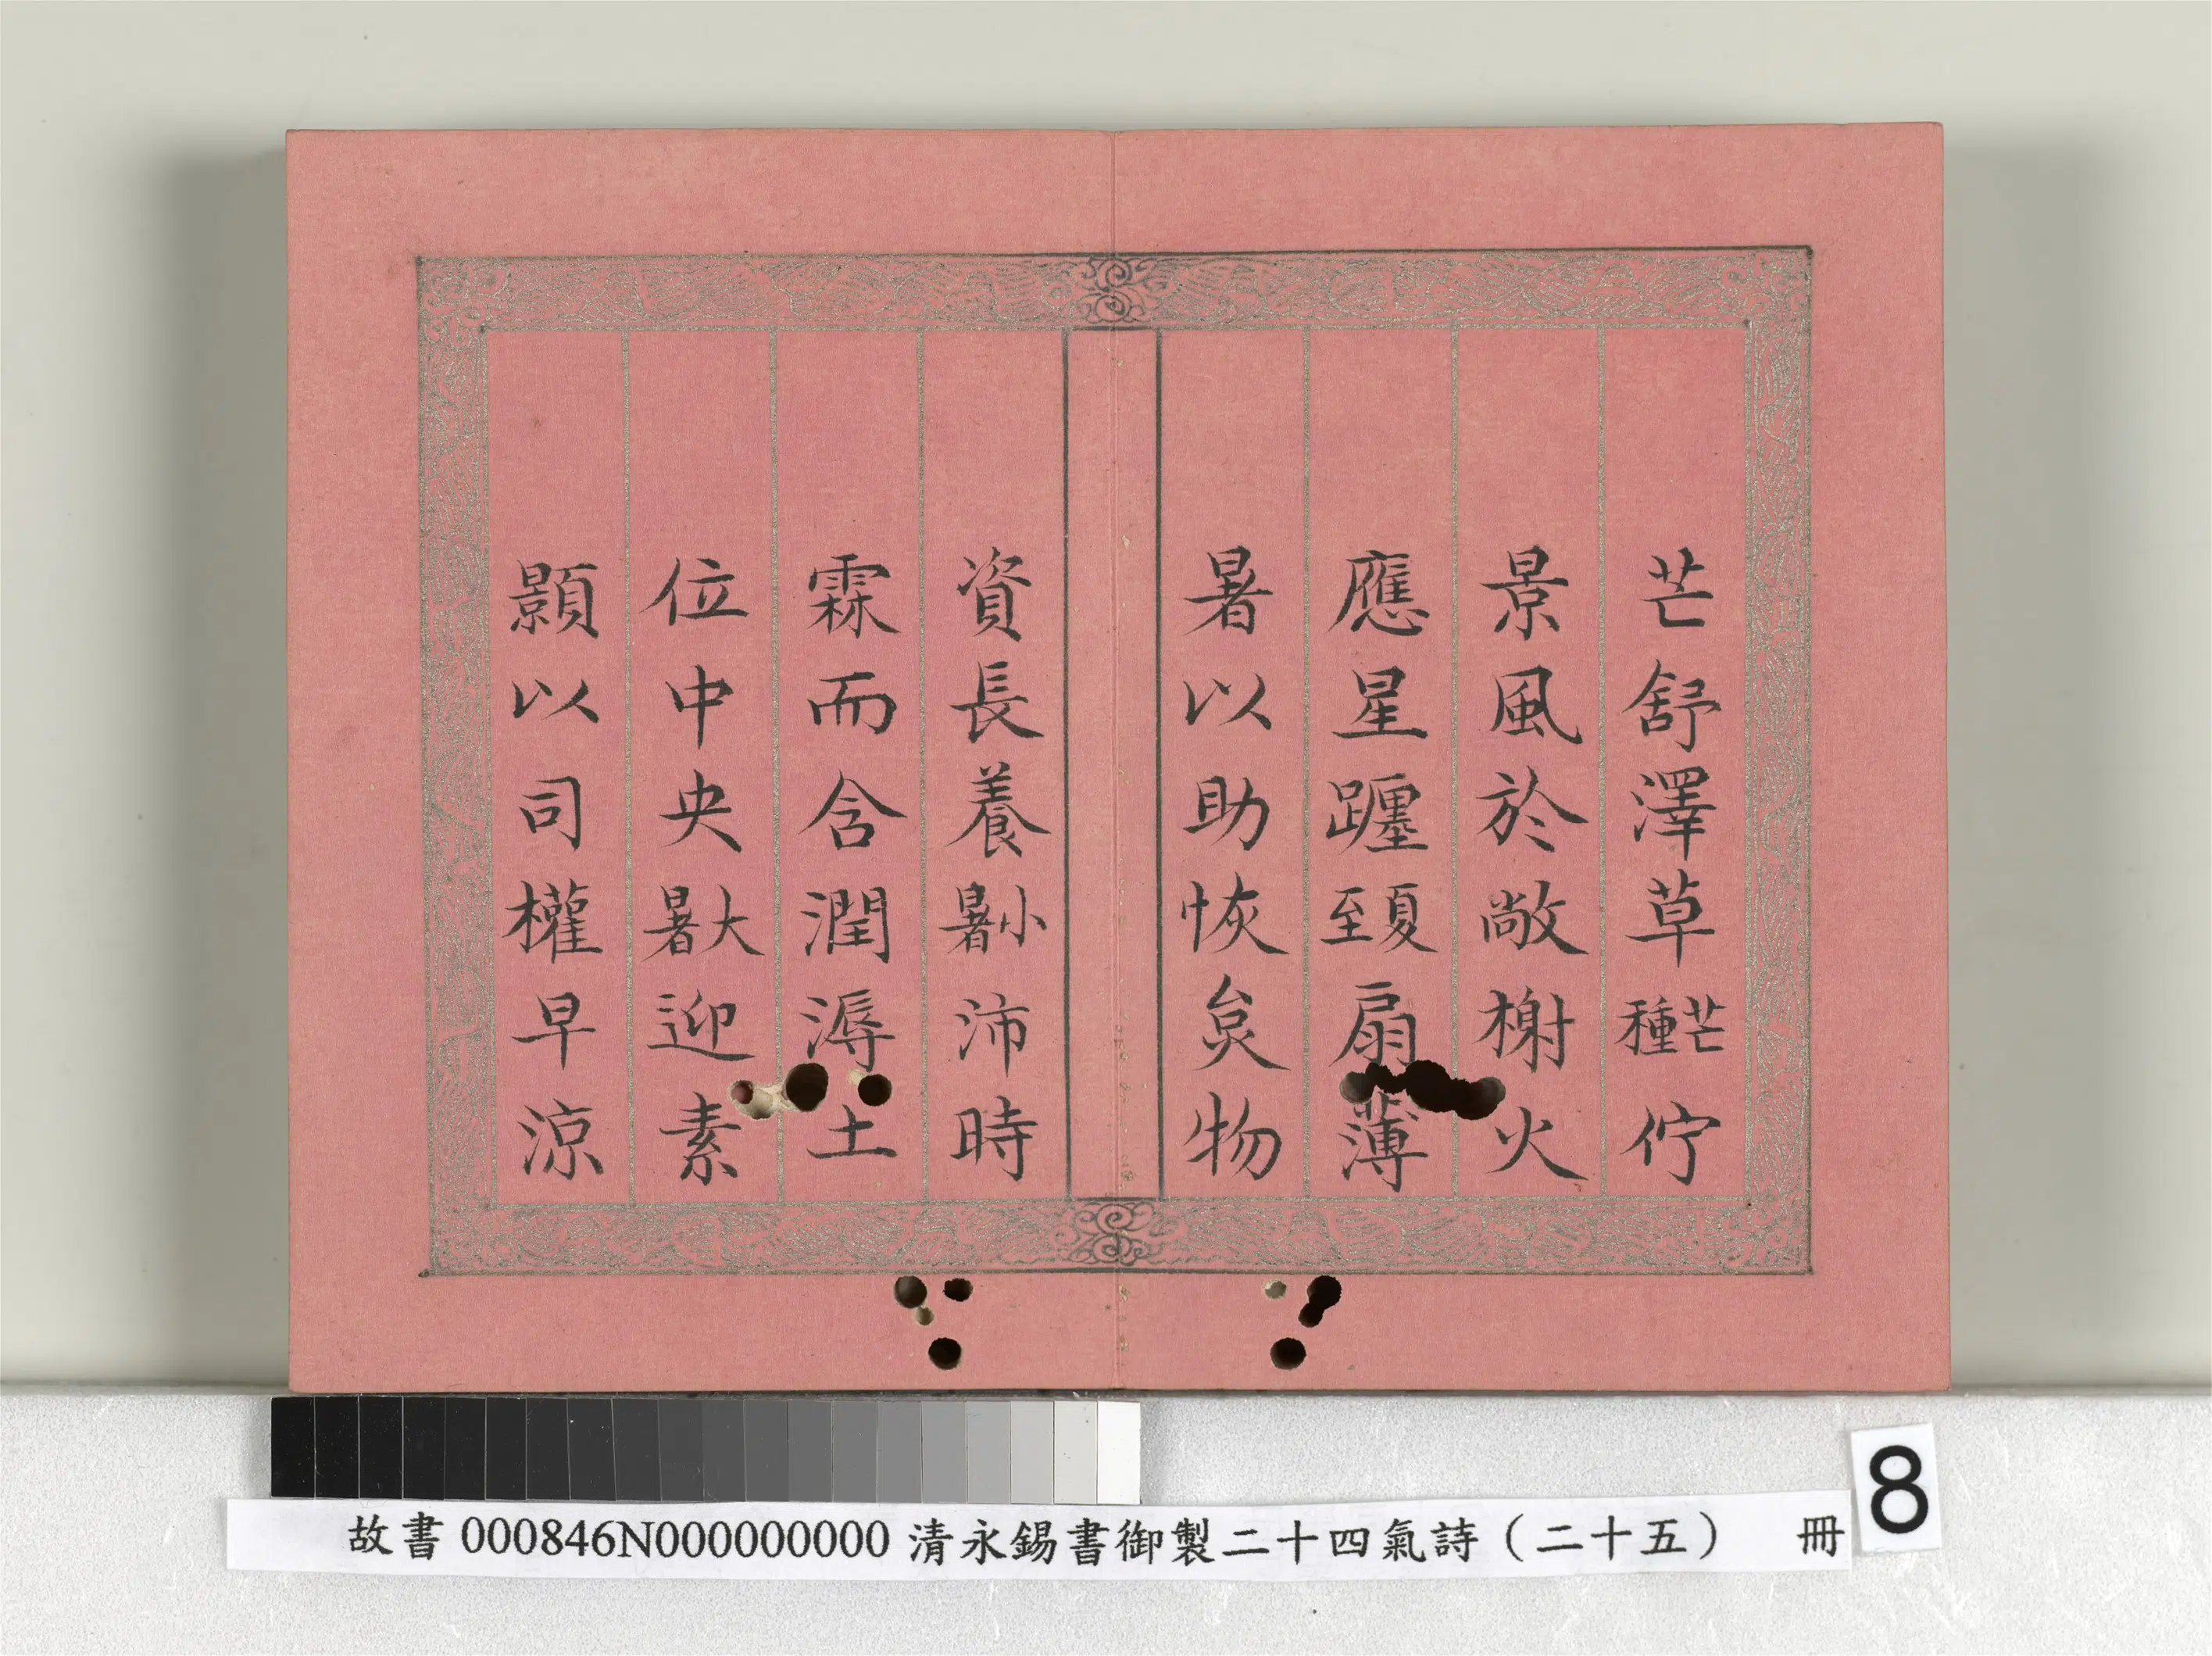 芒舒澤草芒種佇
景風於敞榭火
應星躔夏至頞扇薄
暑以助恢炱物
資長養小暑沛時
霖而含潤溽土
位中央大暑迎素
顥以司權早涼
8
故書 000846N000000000 清永錫書御製二十四氣詩（二十五） 冊